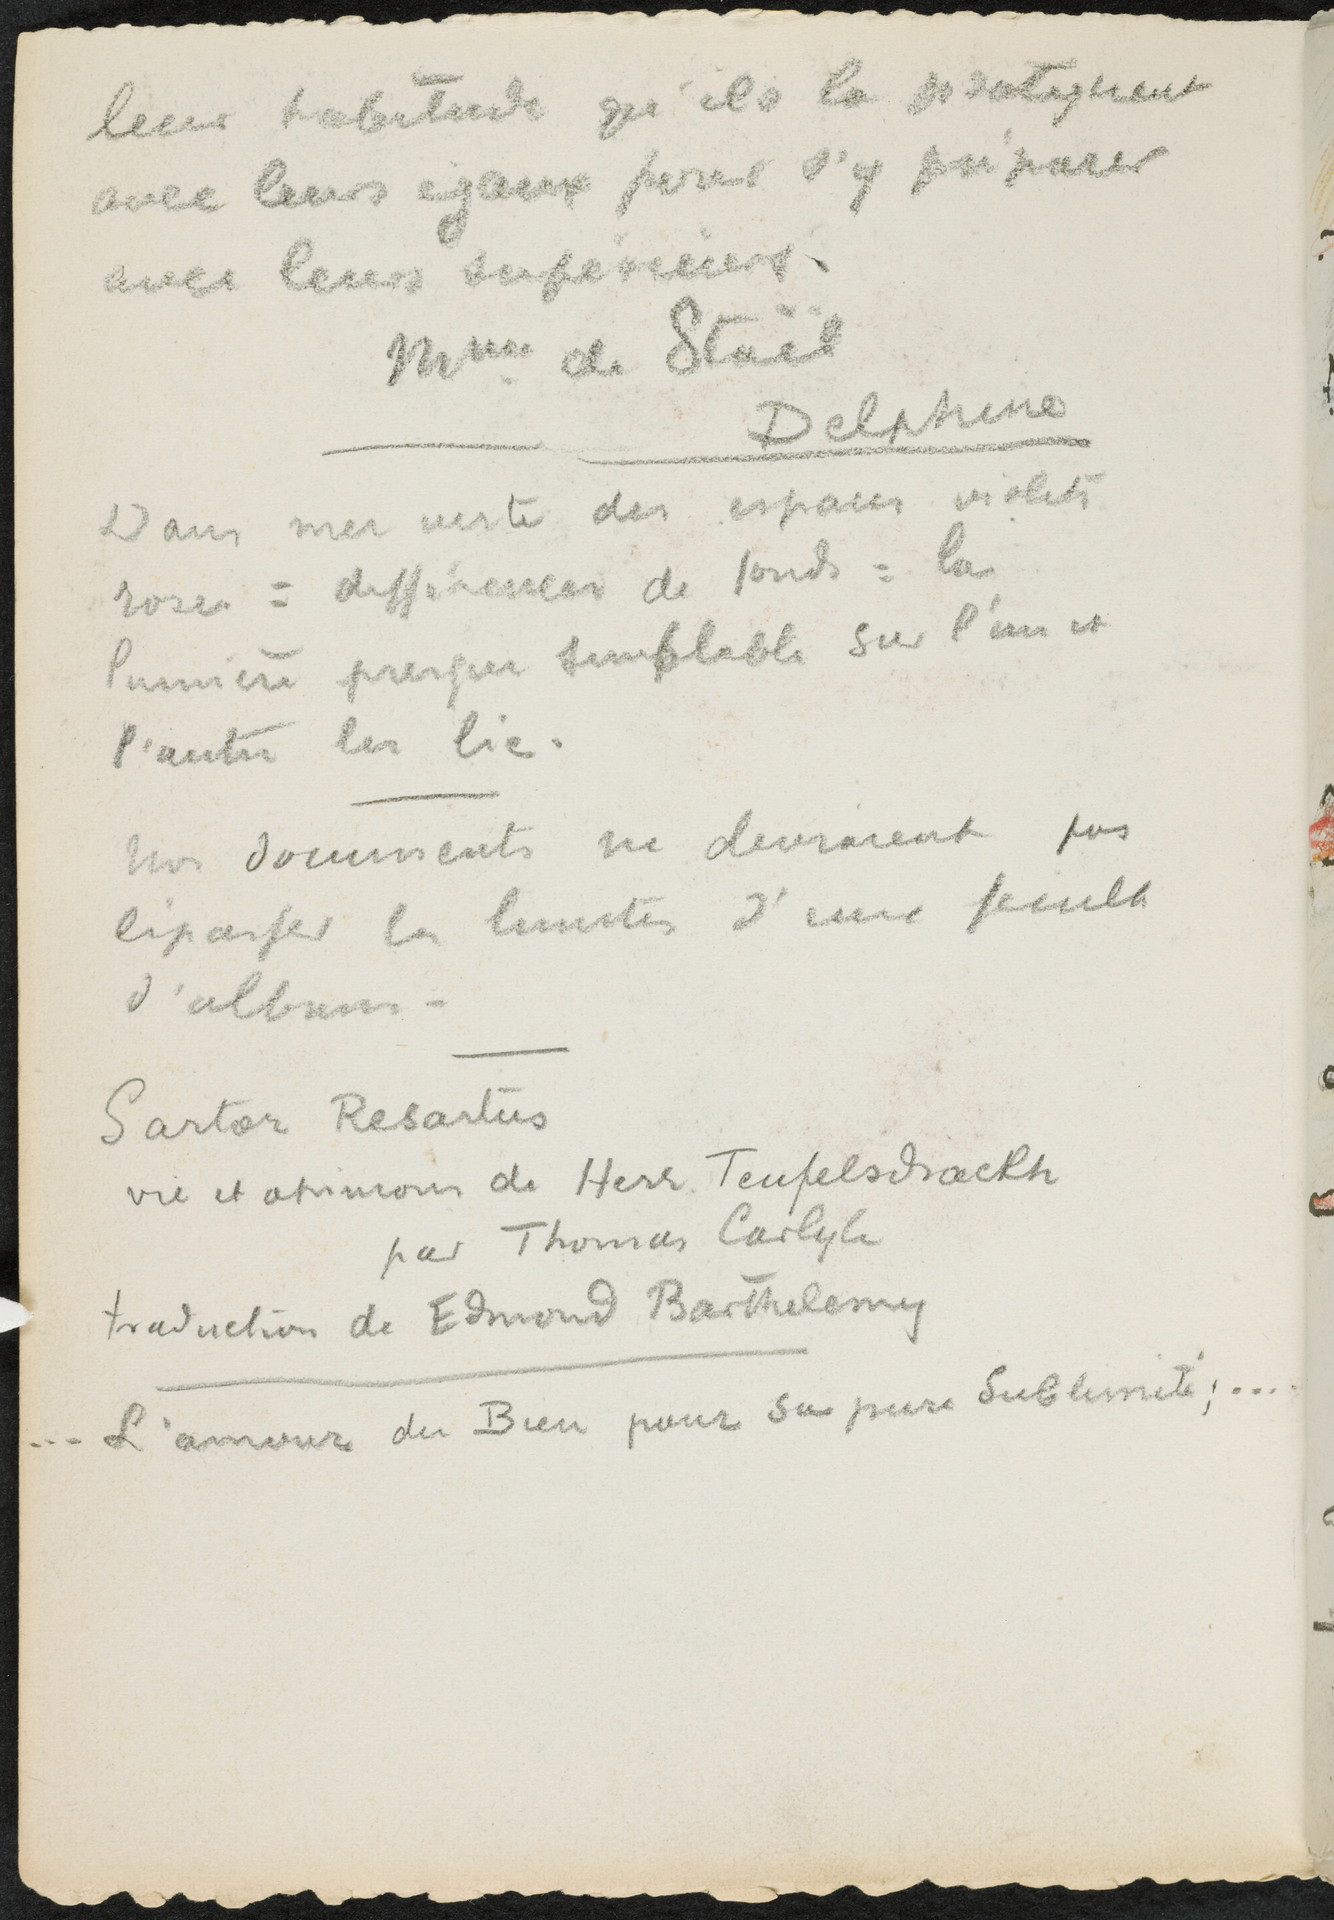 leur habitude qu'ils la pratiquent
avec leurs égaux pour s'y préparer
avec leurs supérieurs.
Mme de Staël
Delphine
Dans mer verte des espaces violets
roses = différences de fonds = la
lumière presque semblable sur l'un et
l'autre les lie.
Nos documents ne devraient pas
les limites d'une feuille
d'album -
Sartor Resartus
vie et opinions de Herr Teufelsdrœckh
par Thomas Carlyle
traduction de Edmond Barthelemy
... L'amour du Bien pour sa pure Sublimité; ....